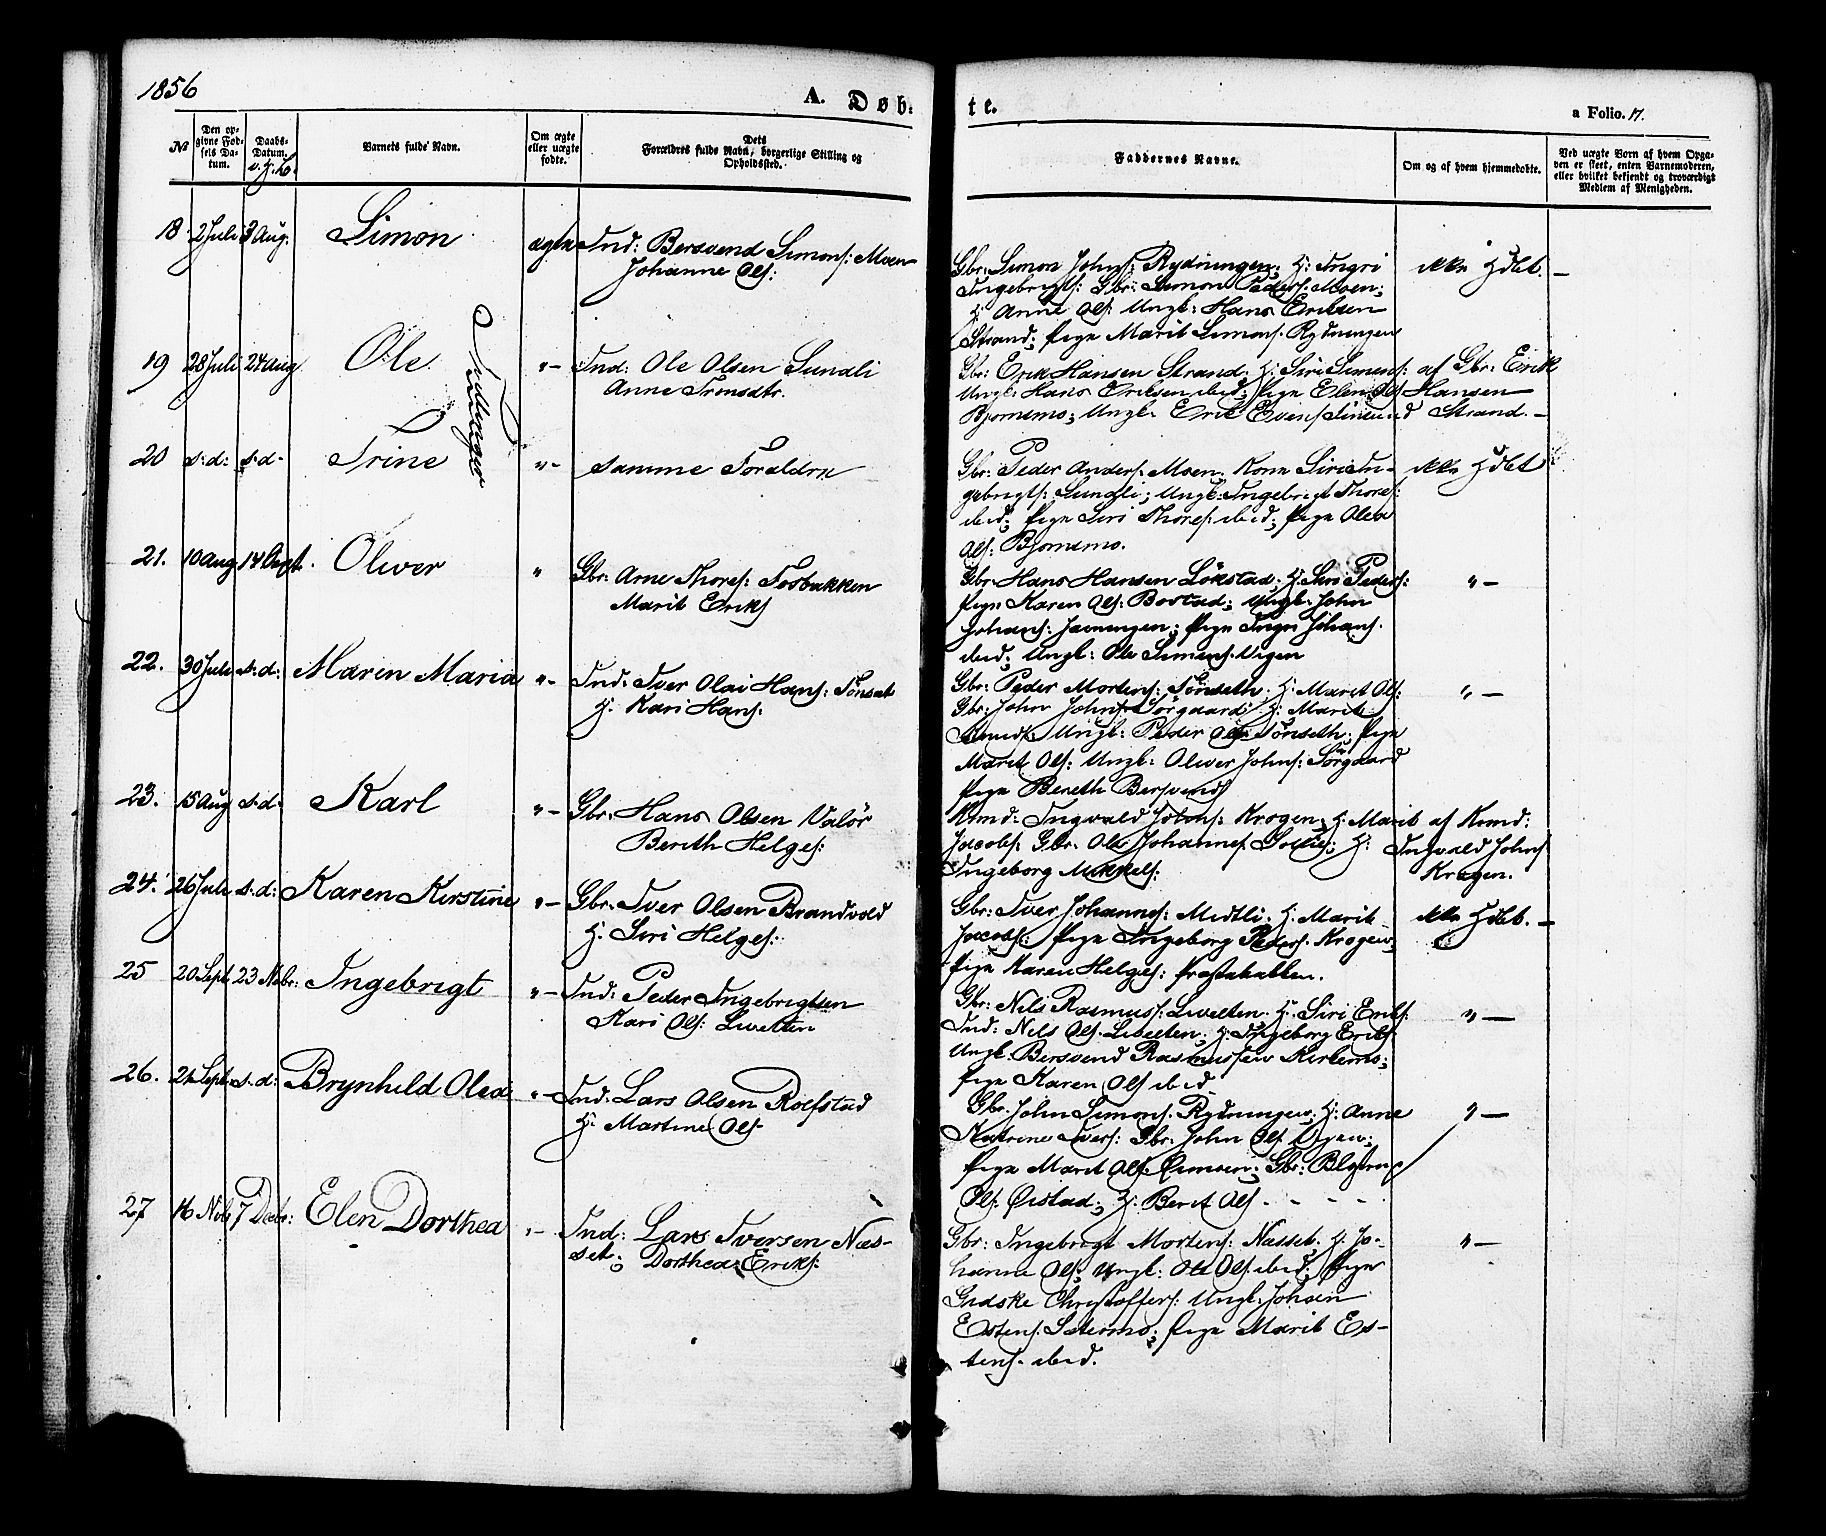 1856
A. Døb-
te.
a Folio. 17.
№
Den op-
givne Fød-
sels Da-
tum.
Daabs-
Datum.
Barnets fulde Navn.
Om ægte
eller uægte
fødte.
Dets
Forældres fulde Navn, borgerlige Stilling og
Opholdssted.
Faddernes Navne.
Om og af hvem hjemmedøbte.
Ved uægte Børn af hvem Opga-
ven er skeet, enten Barnemoderen,
eller hvilket bekjendt og troværdigt
Medlem af Menigheden.
18 2 Juli 3 Aug. Simon ægte Ind: Bersvend Simons: Moen
Johanne Ols:
Gbr: Simon Johns: Rydningen; H: Ingri
Ingebrigts: Gbr: Simon Peders: Moen;
H: Anne Ols: Ungk: Hans Eriksen
Strand; Pige Marit Simons: Rydningen
ikke Hdbt. —
19 28 Juli 24 Aug Ole. "- Ind: Ole Olsen Sundli
Anne Tronsdtr.
Tvillinger
Gbr: Erik Hansen Strand; H: Siri Simons:
Ungk: Hans Eriksen ibid; Pige Elen Ols
Bjørnsmo; Ungk: Eric Evens
af Gbr: Erik
Hansen
Strand. -
20 s:d: s:d- Trine "- samme Forældre
Gbr: Peder Anders: Moen; Kone Siri In-
gebrigts: Sundli; Ungk: Ingebrigt Thores:
ibid; Pige Siri Thores: ibid; Pige Olea
Ols: Bjørnsmo.
ikke Hdbt
21. 10 Aug 14 Sept. Oliver " Gbr: Arne Thores: Fosbakken
Marit Eriks
Gbr: Hans Hansen Løkstad; H: Siri Peders:
Pige Karen Ols: Bostad; Ungk: John
Johans: ; Pige Ingri Johans:
ibid; Ungk: Ole Simens: Vigen
"-
22. 30 Juli s:d: Maren Maria "- Ind: Iver Olai Hans: Tønset
H: Kari Hans:
Gbr: Peder Mortens: Tønseth; H: Marit Ols:
Gbr: John Johns: Sørgaard; H: Marit
Ungk: Peder Ols Tønseth; Pige
Marit Ols: Ungk: Oliver Johns: Sørgaard
Pige Bereth Bersvends
"-
23. 15 Aug s:d. Karl "- Gbr: Hans Olsen Valør
Bereth Helges:
Kmd: Ingvald Johns: Krogen; H: Marit
Jacobs: Gbr: Ole Johannes: ; H:
Ingeborg Mikkels:
af Kmd:
Ingvald Johns:
Krogen.
24. 26 Juli s:d: Karen Kirstine "- Gbr: Iver Olsen Brandvold
H: Siri Helges:
Gbr: Iver Johannes: Midtli; H: Marit
Jacobs: Pige Ingeborg Peders: Krogen;
Pige Karen Helges: Præstehallen.
ikke Hdbt. —
25 20 Sept 23 Nobr: Ingebrigt "- Ind: Peder Ingebrigtsen
Kari Ols: Lwelten
Gbr: Nils Rasmus: Lwelten; H: Siri Eriks:
Ind: Nils Ols: Lwelten; H: Ingeborg Eriks:
Ungk: Bersvend Rasmussen Kirkemo;
Pige Karen Ols ibid
"-
26. 21 Sept. s:d: Brynhild Olea "- Ind: Lars Olsen Rolfstad
H: Martine Ols:
Gbr: John Simons: Rydningen; H: Anne
Katrine Ivers: Gbr: John Ols: Vigen;
Pige Marit Ols: ; Gbr:
Ols: Øistad; H: Berit Ols - - - -
"-
27 16 Nobr 7 Decbr: Elen Dorthea "- Ind: Lars Iversen Næs-
set; Dorthea Eriks:
Gbr: Ingebrigt Mortens: Næsset; H: Jo-
hanne Ols: Ungk: Ole Ols: ibid; Pige
Gudske Christoffers: Ungk: Johsen
Estens: Sætermo; Pige Marit Es-
tens: ibid.
"-